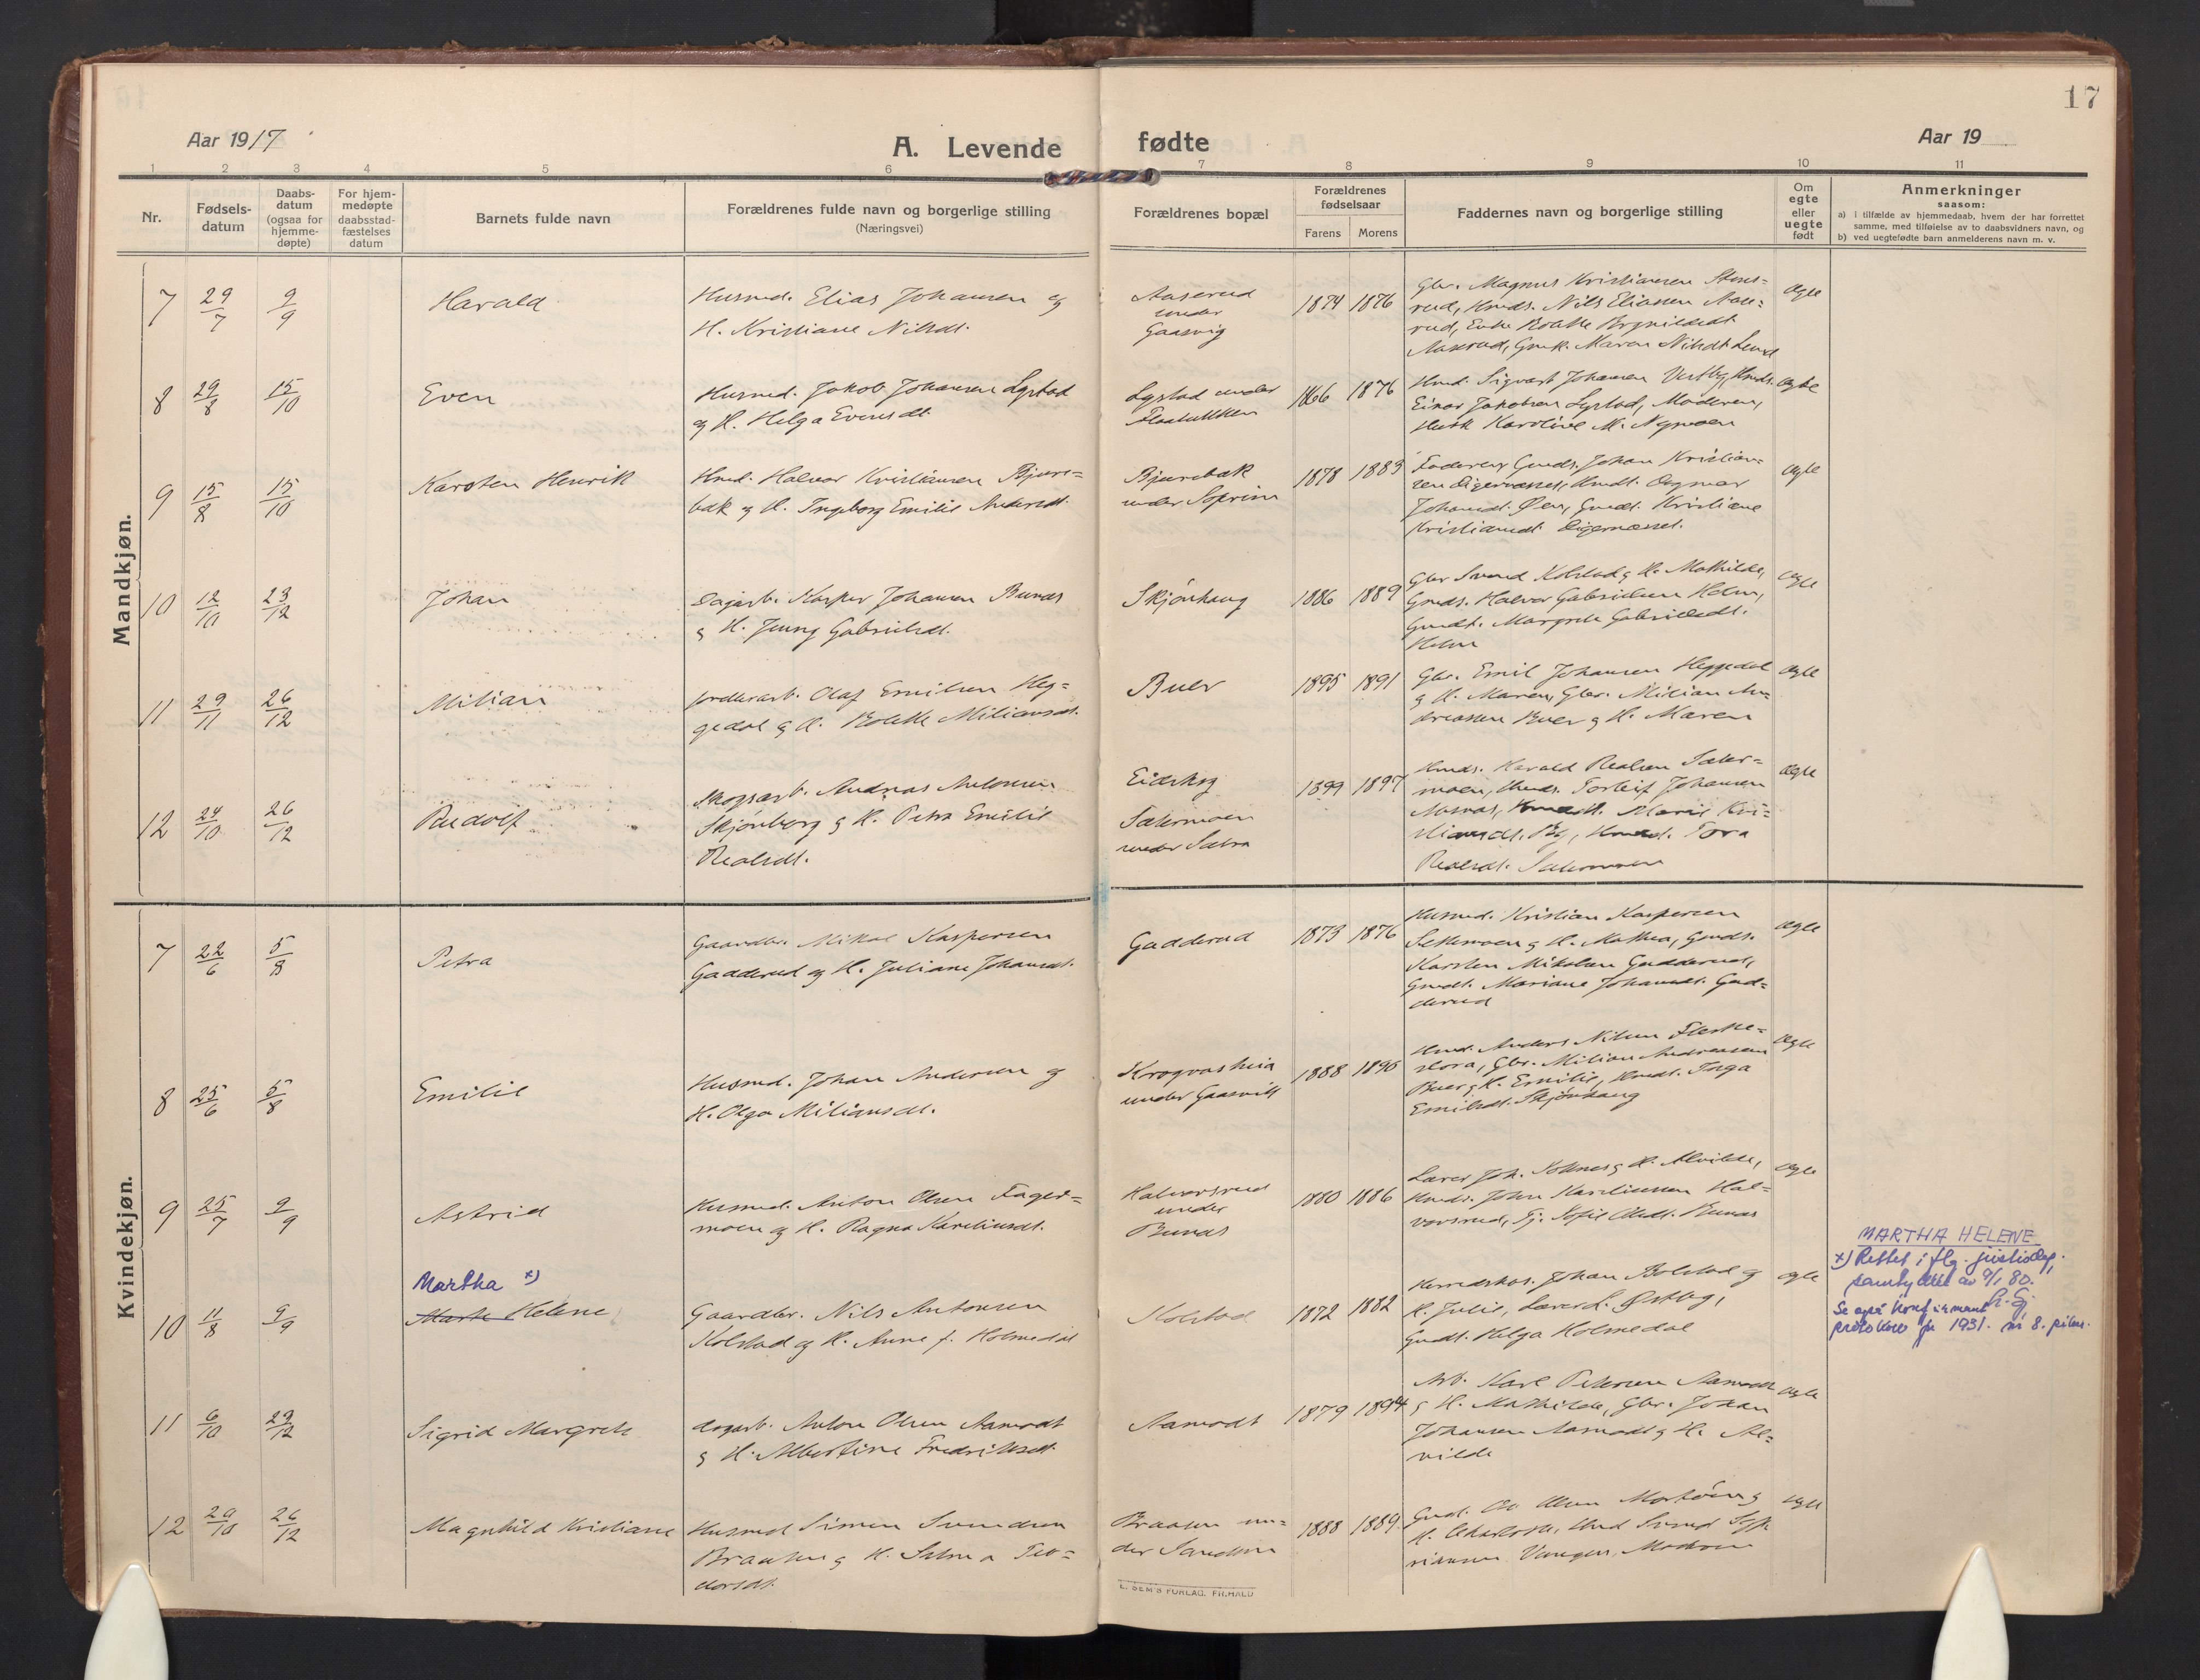 17
Aar 1917
A. Levende fødte
Aar 19
1 2 3 4 5 6 7 8 9 10 11
Nr.
Fødsels-
datum
Daabs-
datum
(ogsaa for
hjemme-
døpte)
For hjem-
medøpte
daabsstad-
fæstelses
datum
Barnets fulde navn
Forældrenes fulde navn og borgerlige stilling
(Næringsvei)
Forældrenes bopæl
Forældrenes
fødselsaar
Farens Morens
Faddernes navn og borgerlige stilling
Om
egte
eller
uegte
født
Anmerkninger
saasom:
a) i tilfælde av hjemmedaab, hvem der har forrettet
samme, med tilføielse av to daabsvidners navn, og
b) ved uegtefødte barn anmelderens navn m. v.
Mandkjøn.
7 29/7 9/9 Harald
Husmd. Elias Johansen og
H. Kristiane Nilsdt.
Aaserud
under
Gaasvig
1874 1876
Gbr. Magnus Kristiansen Stens-
rud, Undt. Nils Eliassen Aase-
rud, Enke Bolette Brynildsdt.
Aaserud, Gmk. Maren Nilsdt. Lund
ægte
8 29/8 15/10 Even
Husmd. Jakob Johansen Lystad
og H. Helga Evensdt.
Lystad under
1866 1876
Sigvart Johansen Vestby,
Einar Jakobsen Lystad, Moderen,
Karoline M. Nymoen
ægte
9 15/8 15/10 Karsten Henrik
Halvor Kristiansen Bjure-
bæk og H. Ingeborg Emilie Andersdt.
Bjurebæk
under
1878 1883
Faderen, Johan Kristian-
sen Digernæsset, Dagmar
Johansdt. Kristiane
Kristiansdt. Digernæsset.
ægte
10 12/10 23/12 Johan
Dagarb. Kasper Johansen Bunæs
og H. Jenny Gabrielsdt.
Skjønhaug
1886 1889
Gbr Svend Kolstad og H. Mathilde,
Halvor Gabrielsen Holm,
Margrete Gabrielsdt.
Holm
ægte
11 29/11 26/12 Milian
Jordarb. Olaf Emilsen Heg-
gedal og H. Bolette Miliansdt.
Buer
1895 1891
Gbr. Emil Johansen Heggedal
og H. Maren, Gbr. Milian An-
dreassen Buer og H. Maren
ægte
12 24/10 26/12 Rudolf
Skogsarb. Andreas Antonsen
Skjønberg og H. Petra Emilie
Realsdt.
Eidskog
Sætermoen
under Sætra
1899 1897
Harald Realsen Sæter-
moen, Torleif Johansen
Marie Kri-
stiansdt. Tora
Realsdt. Sætermoen
ægte
Kvindekjøn.
7 22/6 5/8 Petra
Gaardbr. Mikal Kaspersen
Gadderud og H. Juliane Johansdt.
Gadderud
1873 1876
Husmd. Kristian Kaspersen
Sætermoen og H. Mathea,
Karsten Mikalsen Gadderud,
Mariane Johansdt. Gad-
derud
ægte
8 25/6 5/8 Emilie
Husmd. Johan Andersen og
H. Olga Miliansdt.
under Gaasvik
1888 1890
Anders Nilsen
Gbr. Milian Andreassen
Buer og H. Emilie, Inga
Emilsdt. Skjønhaug
ægte
9 25/7 9/9 Astrid
Husmd. Anton Olsen Fager-
moen og H. Ragna Karelinsdt.
Halvorsrud
under
Bunæs
1880 1886
Lærer Joh. og H. Alvilde,
John Karelinssen Hal-
vorsrud, Tj. Sofie Olsdt. Bunæs
ægte
Martha x)
10 11/8 9/9 Marte Helene
Gaardbr. Nils Antonsen
Kolstad og H. Anne f. Holmedal
Kolstad
1872 1882
Herredskas. Johan Bolstad og
H. Julie, Lærer L. Østby,
Helga Holmedal
ægte
MARTHA HELENE
x) Rettet i flg justisdep.
samtykke av 9/1 80.
Se også konfirmant
protokoll for 1931. nr 8. piker.
11 6/10 29/12 Sigrid Margrete
Dagarb. Anton Olsen Aamodt
og H. Albertine Fredriksdt.
Aamodt
1879 1894
Arb. Karl Petersen Aamodt
og H. Mathilde, Gbr. Johan
Johansen Aamodt og H. Al-
vilde
ægte
12 29/10 26/12 Magnhild Kristiane
Husmd Simen Svendsen
Braaten og H. Selma Teo-
dorsdt.
Braaten un-
der
1888 1889
Gmd. Ole Olsen
H. Charlotte,
Moderen
ægte
E. SEM'S FORLAG. FR.HALD